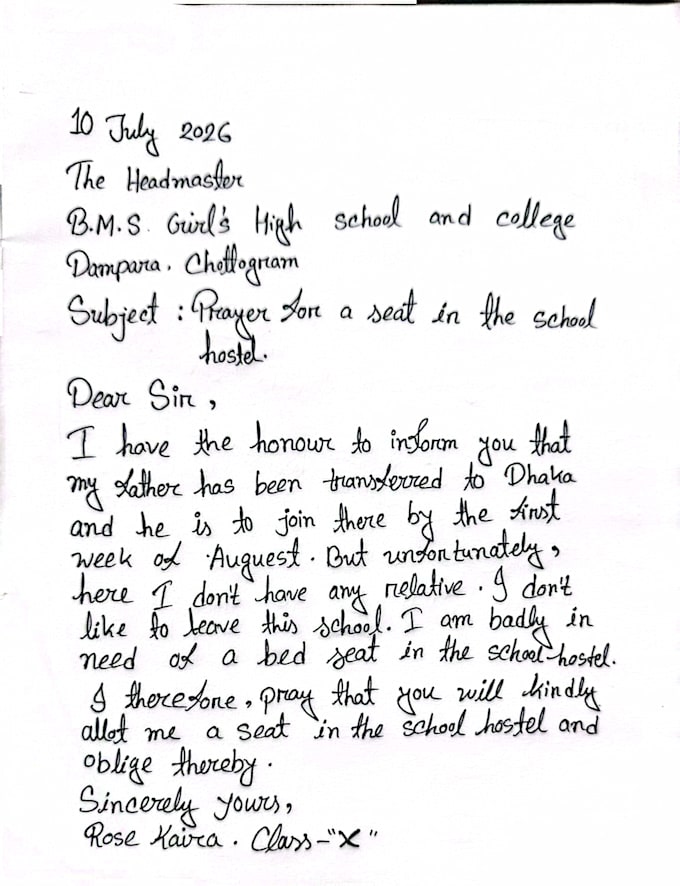 10 July 2026
The Headmaster
B.M.S. Girl's High school and college
Dampara. Chottogram
Subject : Prayer for a seat in the school
hostel.
Dear Sir,
I have the honour to inform you that
my father has been transferred to Dhaka
and he is to join there by the first
week of Auguest. But unfortunately,
here I don't have any relative. I don't
like to leave this school. I am badly in
need of a bed seat in the school hostel.
I therefore, pray that you will kindly
allot me a seat in the school hostel and
oblige thereby.
Sincerely yours,
Rose Kaira. Class-"X"